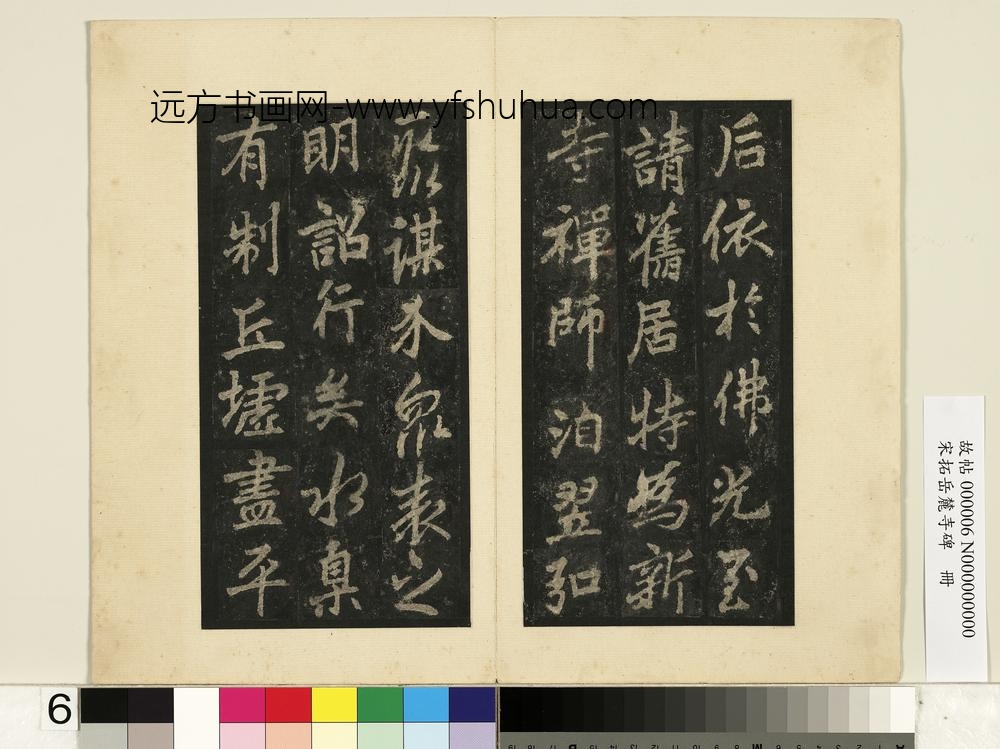 远方书画网-www.yfshuhua.com
后依於佛光至
請舊居特為新
寺禪師洎翌弘
聚謀介眾表之
明詔行矣水臬
有制丘墟盡平
故帖 000006 N000000000
宋拓岳麓寺碑 冊
6